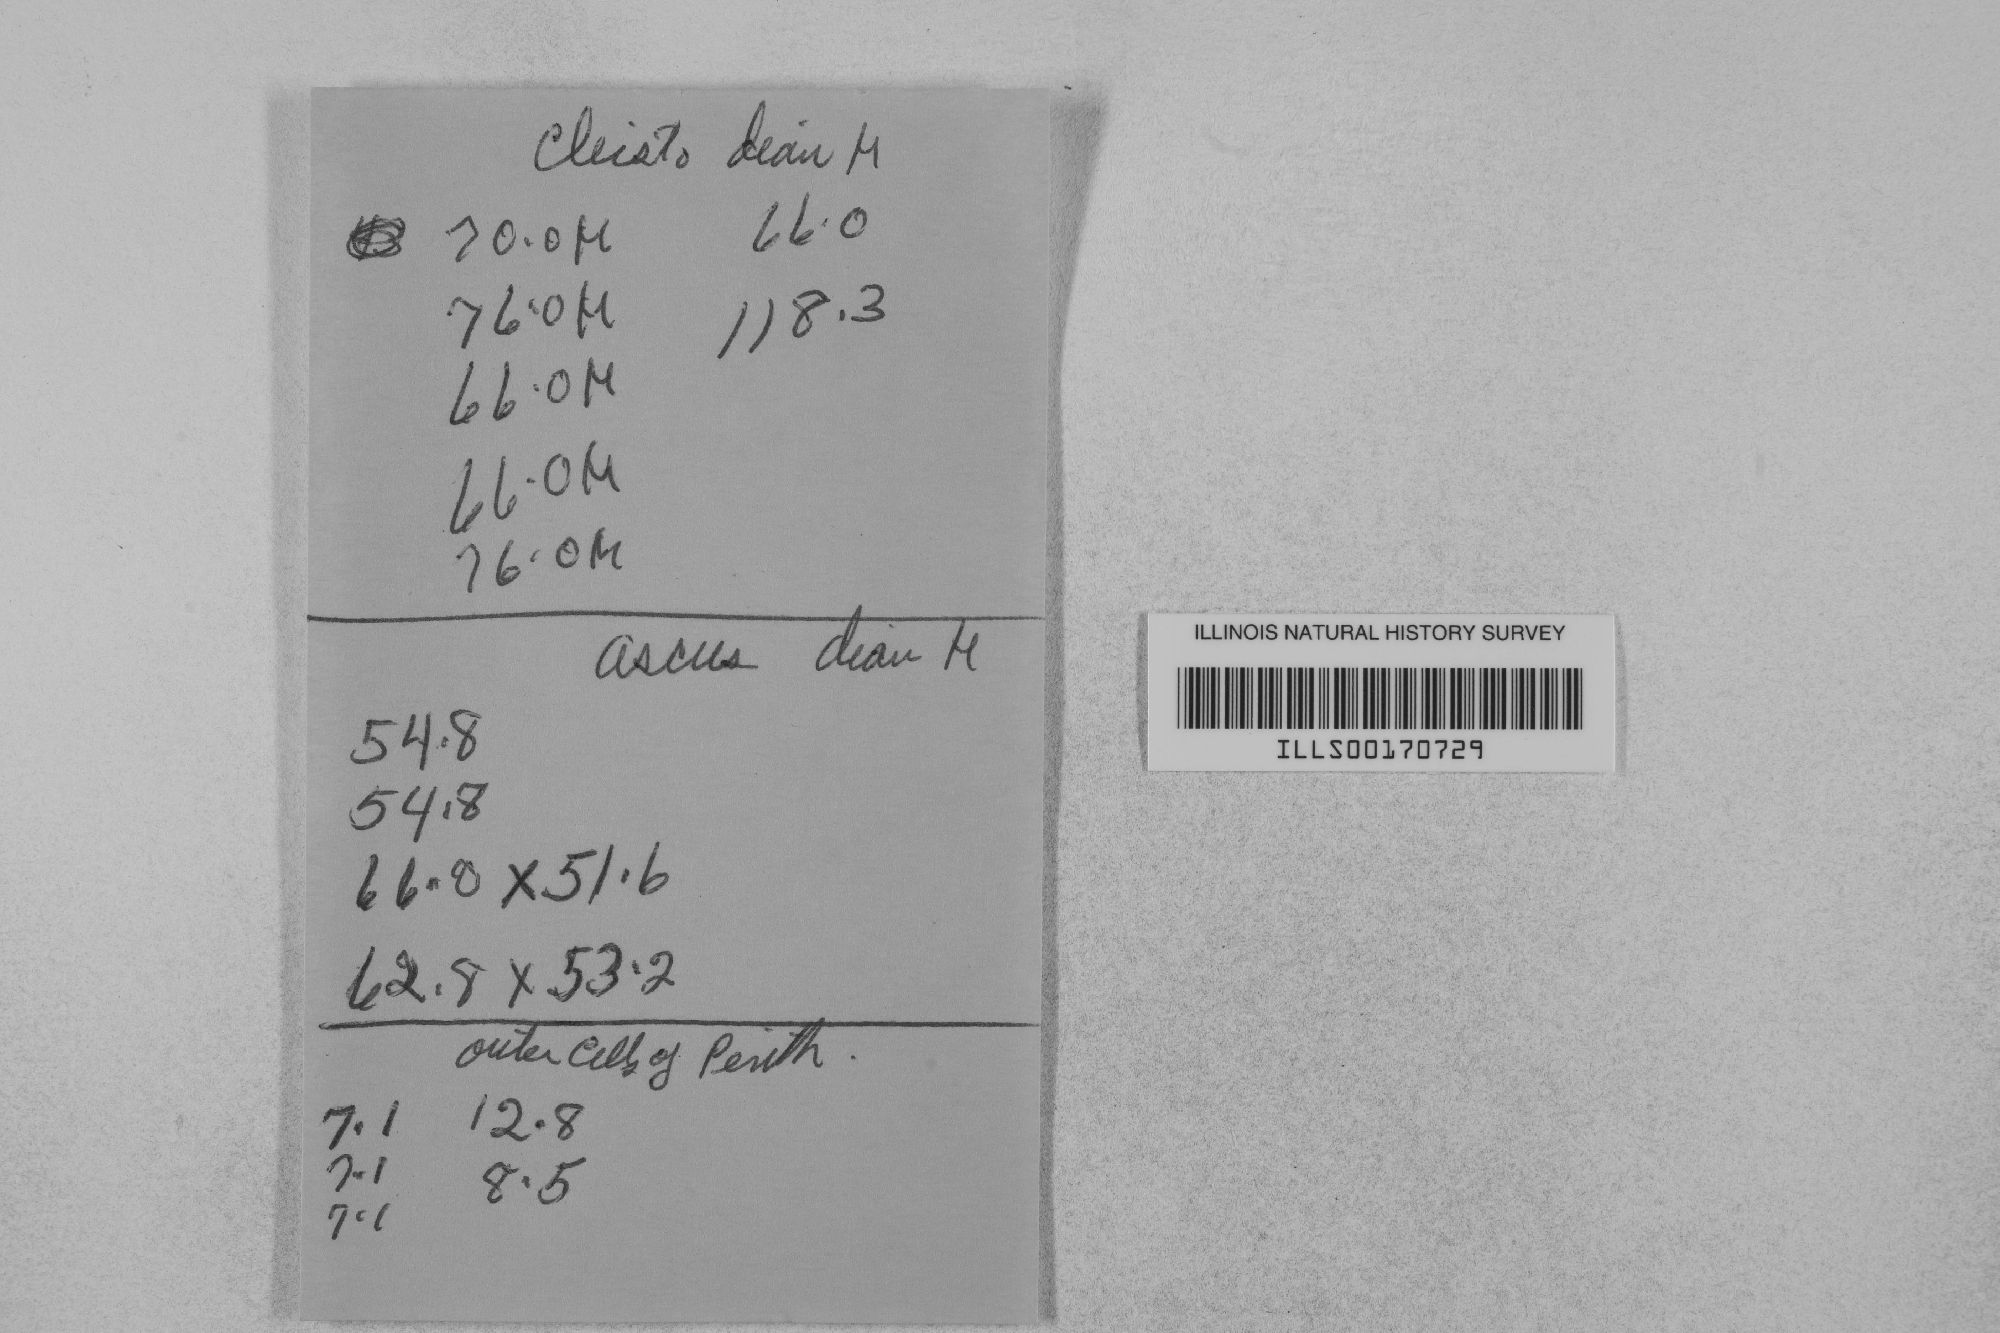 Cleisto diam µ
70.0µ 66.0
76.0µ 118.3
66.0µ
66.0µ
76.0µ
ascus diam µ
54.8
54.8
66.0 x 51.6
62.8 x 53.2
outer cells of Perith.
7.1 12.8
7.1 8.5
7.1
ILLINOIS NATURAL HISTORY SURVEY
ILLS00170729